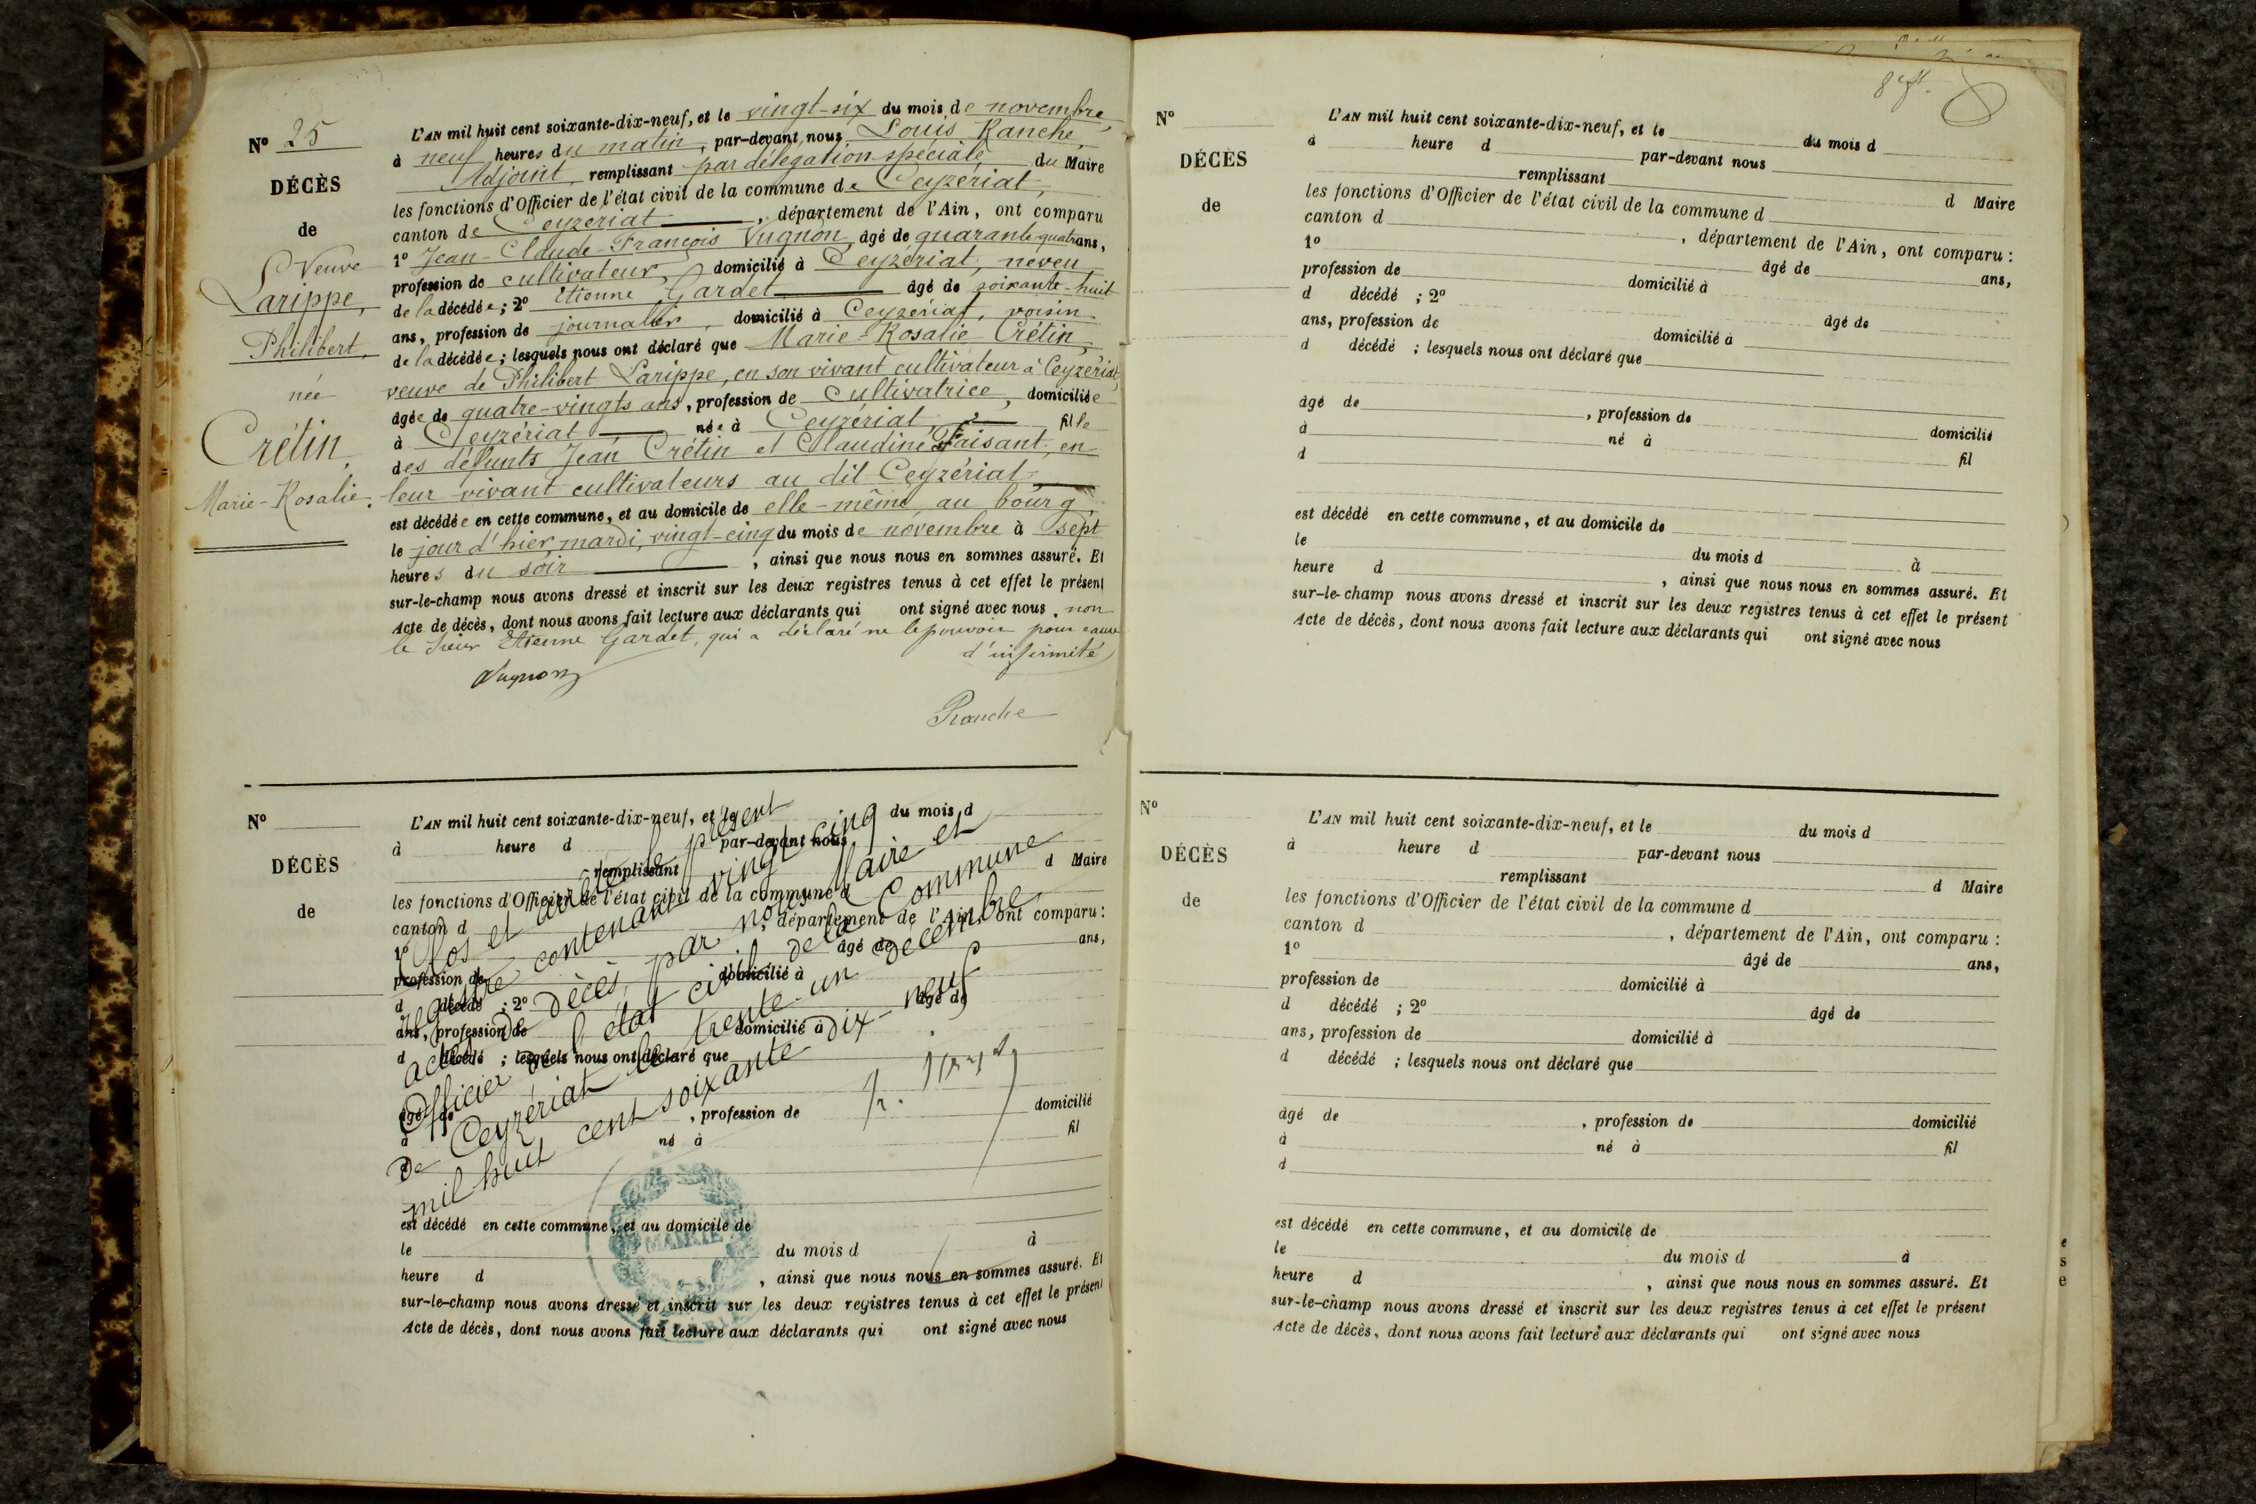 N° 25
DÉCÈS
de
Veuve
Larippe,
Philibert,
née
Crétin,
Marie-Rosalie.
L'AN mil huit cent soixante-dix-neuf, et le vingt-six du mois de novembre,
à neuf heures du matin, par-devant nous, Louis Ranche,
Adjoint, remplissant par délégation spéciale du Maire
les fonctions d'Officier de l'état civil de la commune de Ceyzériat,
canton de Ceyzériat, département de l'Ain, ont comparu
1° Jean-Claude-François Vugnon, âgé de quarante-quatre ans,
profession de cultivateur, domicilié à Ceyzériat, neveu
de la décédée; 2° Etienne Gardet âgé de soixante-huit
ans, profession de journalier, domicilié à Ceyzériat, voisin
de la décédée; lesquels nous ont déclaré que Marie-Rosalie Crétin,
veuve de Philibert Larippe, en son vivant cultivateur à Ceyzériat,
âgée de quatre-vingts ans, profession de Cultivatrice, domiciliée
à Ceyzériat née à Ceyzériat, fille
des défunts Jean Crétin et Claudine Faisant, en
leur vivant cultivateurs au dit Ceyzériat,
est décédée en cette commune, et au domicile de elle-même, au bourg,
le jour d'hier, mardi, vingt-cinq du mois de novembre à sept
heures du soir, ainsi que nous nous en sommes assuré. Et
sur-le-champ nous avons dressé et inscrit sur les deux registres tenus à cet effet le présent
Acte de décès, dont nous avons fait lecture aux déclarants qui ont signé avec nous, non
le sieur Etienne Gardet, qui a déclaré ne le pouvoir pour cause
d'infirmité
Vugnon
Ranche
N°
DÉCÈS
de
L'AN mil huit cent soixante-dix-neuf, et le du mois d
à heure d par-devant nous
remplissant d Maire
les fonctions d'Officier de l'état civil de la commune d
canton d , département de l'Ain, ont comparu :
1° âgé de ans,
profession de domicilié à
d décédé ; 2° âgé de
ans, profession de domicilié à
d décédé ; lesquels nous ont déclaré que
âgé de , profession de domicilié
à né à fil
d
est décédé en cette commune, et au domicile de
le du mois d à
heure d , ainsi que nous nous en sommes assuré. Et
sur-le-champ nous avons dressé et inscrit sur les deux registres tenus à cet effet le présent
Acte de décès, dont nous avons fait lecture aux déclarants qui ont signé avec nous
Clos et arrêté le présent
registre contenant vingt cinq
actes de décès, par nous Maire et
Officier de l'état civil de la Commune
de Ceyzériat le trente-un décembre
mil huit cent soixante dix-neuf.
MAIRIE
N°
DÉCÈS
de
L'AN mil huit cent soixante-dix-neuf, et le du mois d
à heure d par-devant nous
remplissant d Maire
les fonctions d'Officier de l'état civil de la commune d
canton d , département de l'Ain, ont comparu :
1° âgé de ans,
profession de domicilié à
d décédé ; 2° âgé de
ans, profession de domicilié à
d décédé ; lesquels nous ont déclaré que
âgé de , profession de domicilié
à né à fil
d
est décédé en cette commune, et au domicile de
le du mois d à
heure d , ainsi que nous nous en sommes assuré. Et
sur-le-champ nous avons dressé et inscrit sur les deux registres tenus à cet effet le présent
Acte de décès, dont nous avons fait lecture aux déclarants qui ont signé avec nous
N°
DÉCÈS
de
L'AN mil huit cent soixante-dix-neuf, et le du mois d
à heure d par-devant nous
remplissant d Maire
les fonctions d'Officier de l'état civil de la commune d
canton d , département de l'Ain, ont comparu :
1° âgé de ans,
profession de domicilié à
d décédé ; 2° âgé de
ans, profession de domicilié à
d décédé ; lesquels nous ont déclaré que
âgé de , profession de domicilié
à né à fil
d
est décédé en cette commune, et au domicile de
le du mois d à
heure d , ainsi que nous nous en sommes assuré. Et
sur-le-champ nous avons dressé et inscrit sur les deux registres tenus à cet effet le présent
Acte de décès, dont nous avons fait lecture aux déclarants qui ont signé avec nous